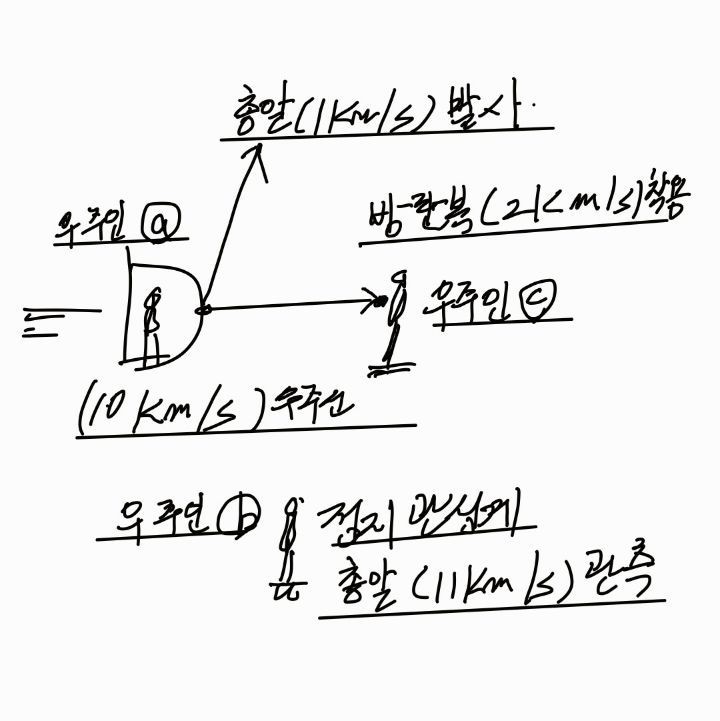 총알(1Km/s) 발사.
방탄복(2Km/s)착용
우주인 ⓐ
우주인 ⓒ
(10Km/s)우주선
우주인 ⓑ
정지 관성계
총알(11Km/s)관측